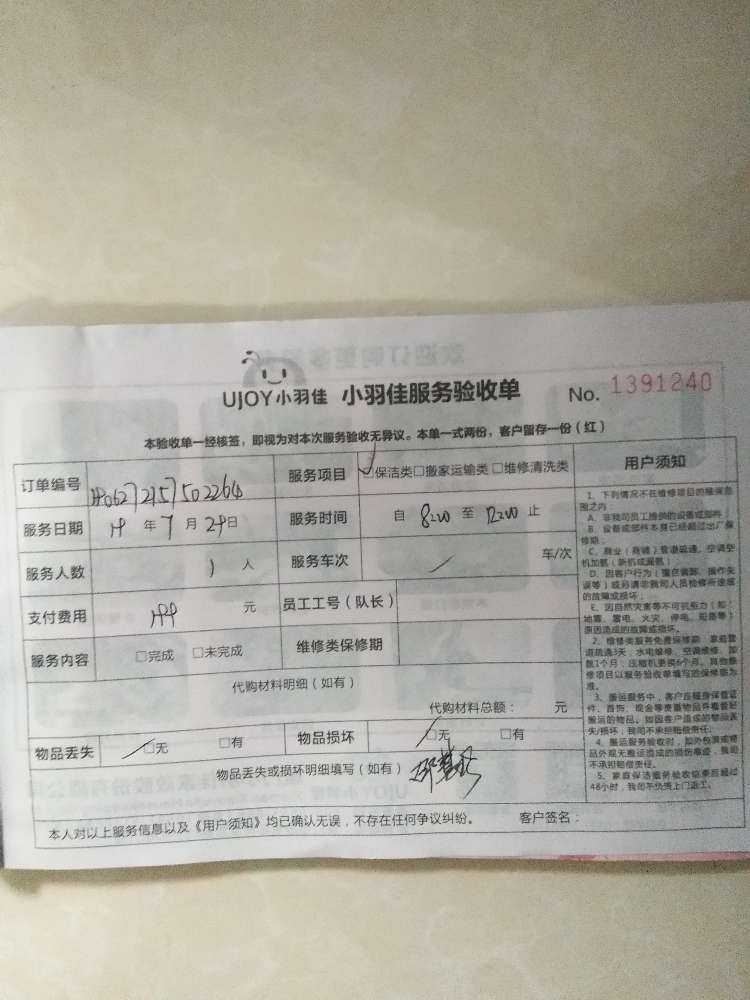 UJOY小羽佳 小羽佳服务验收单 No. 1391240
本验收单一经核签，即视为对本次服务验收无异议。本单一式两份，客户留存一份（红）
订单编号
服务项目 ☑保洁类□搬家运输类□维修清洗类
服务日期 19 年 7 月 29日
服务时间 自 8:00 至 12:00 止
服务人数 1 人
服务车次 / 车/次
支付费用 元
员工工号（队长）
服务内容 □完成 □未完成
维修类保修期
代购材料明细（如有）
代购材料总额： 元
物品丢失 □无 □有
物品损坏 □无 □有
物品丢失或损坏明细填写（如有）
本人对以上服务信息以及《用户须知》均已确认无误，不存在任何争议纠纷。 客户签名：
用户须知
1、下列情况不在维修项目的维保范
围之内
A、非我司员工提供的设备或部件；
B、设备或部件本身已经超过出厂保
修期；
C、商业（商铺）管道疏通、空调空
机加氨（新机或漏氨）
D、因客户行为（撞击偶卸、操作失
误等）或另请非我司人员检修所造成
的故障或损坏；
E、因自然灾害等不可抗拒力（如：
地震、雷电、火灾、停电、短路等）
原因造成的故障或损坏。
2、维修类服务免费保修期：家庭管
道疏通3天，水电维修、空调维修、加
氨1个月，压缩机更换6个月。其他维
修项目以服务验收单填写的保修期为
准。
3、搬运服务中，客户应随身保管证
件、首饰、现金等贵重物品并看管好
搬运的物品。如因客户造成的物品丢
失/损坏，我司不承担赔偿责任；
4、搬运服务验收时，如外包装或物
品外观无搬运造成的损伤痕迹，我司
不承担赔偿责任。
5、家庭保洁服务验收结束后超过
48小时，我司不负责上门返工。